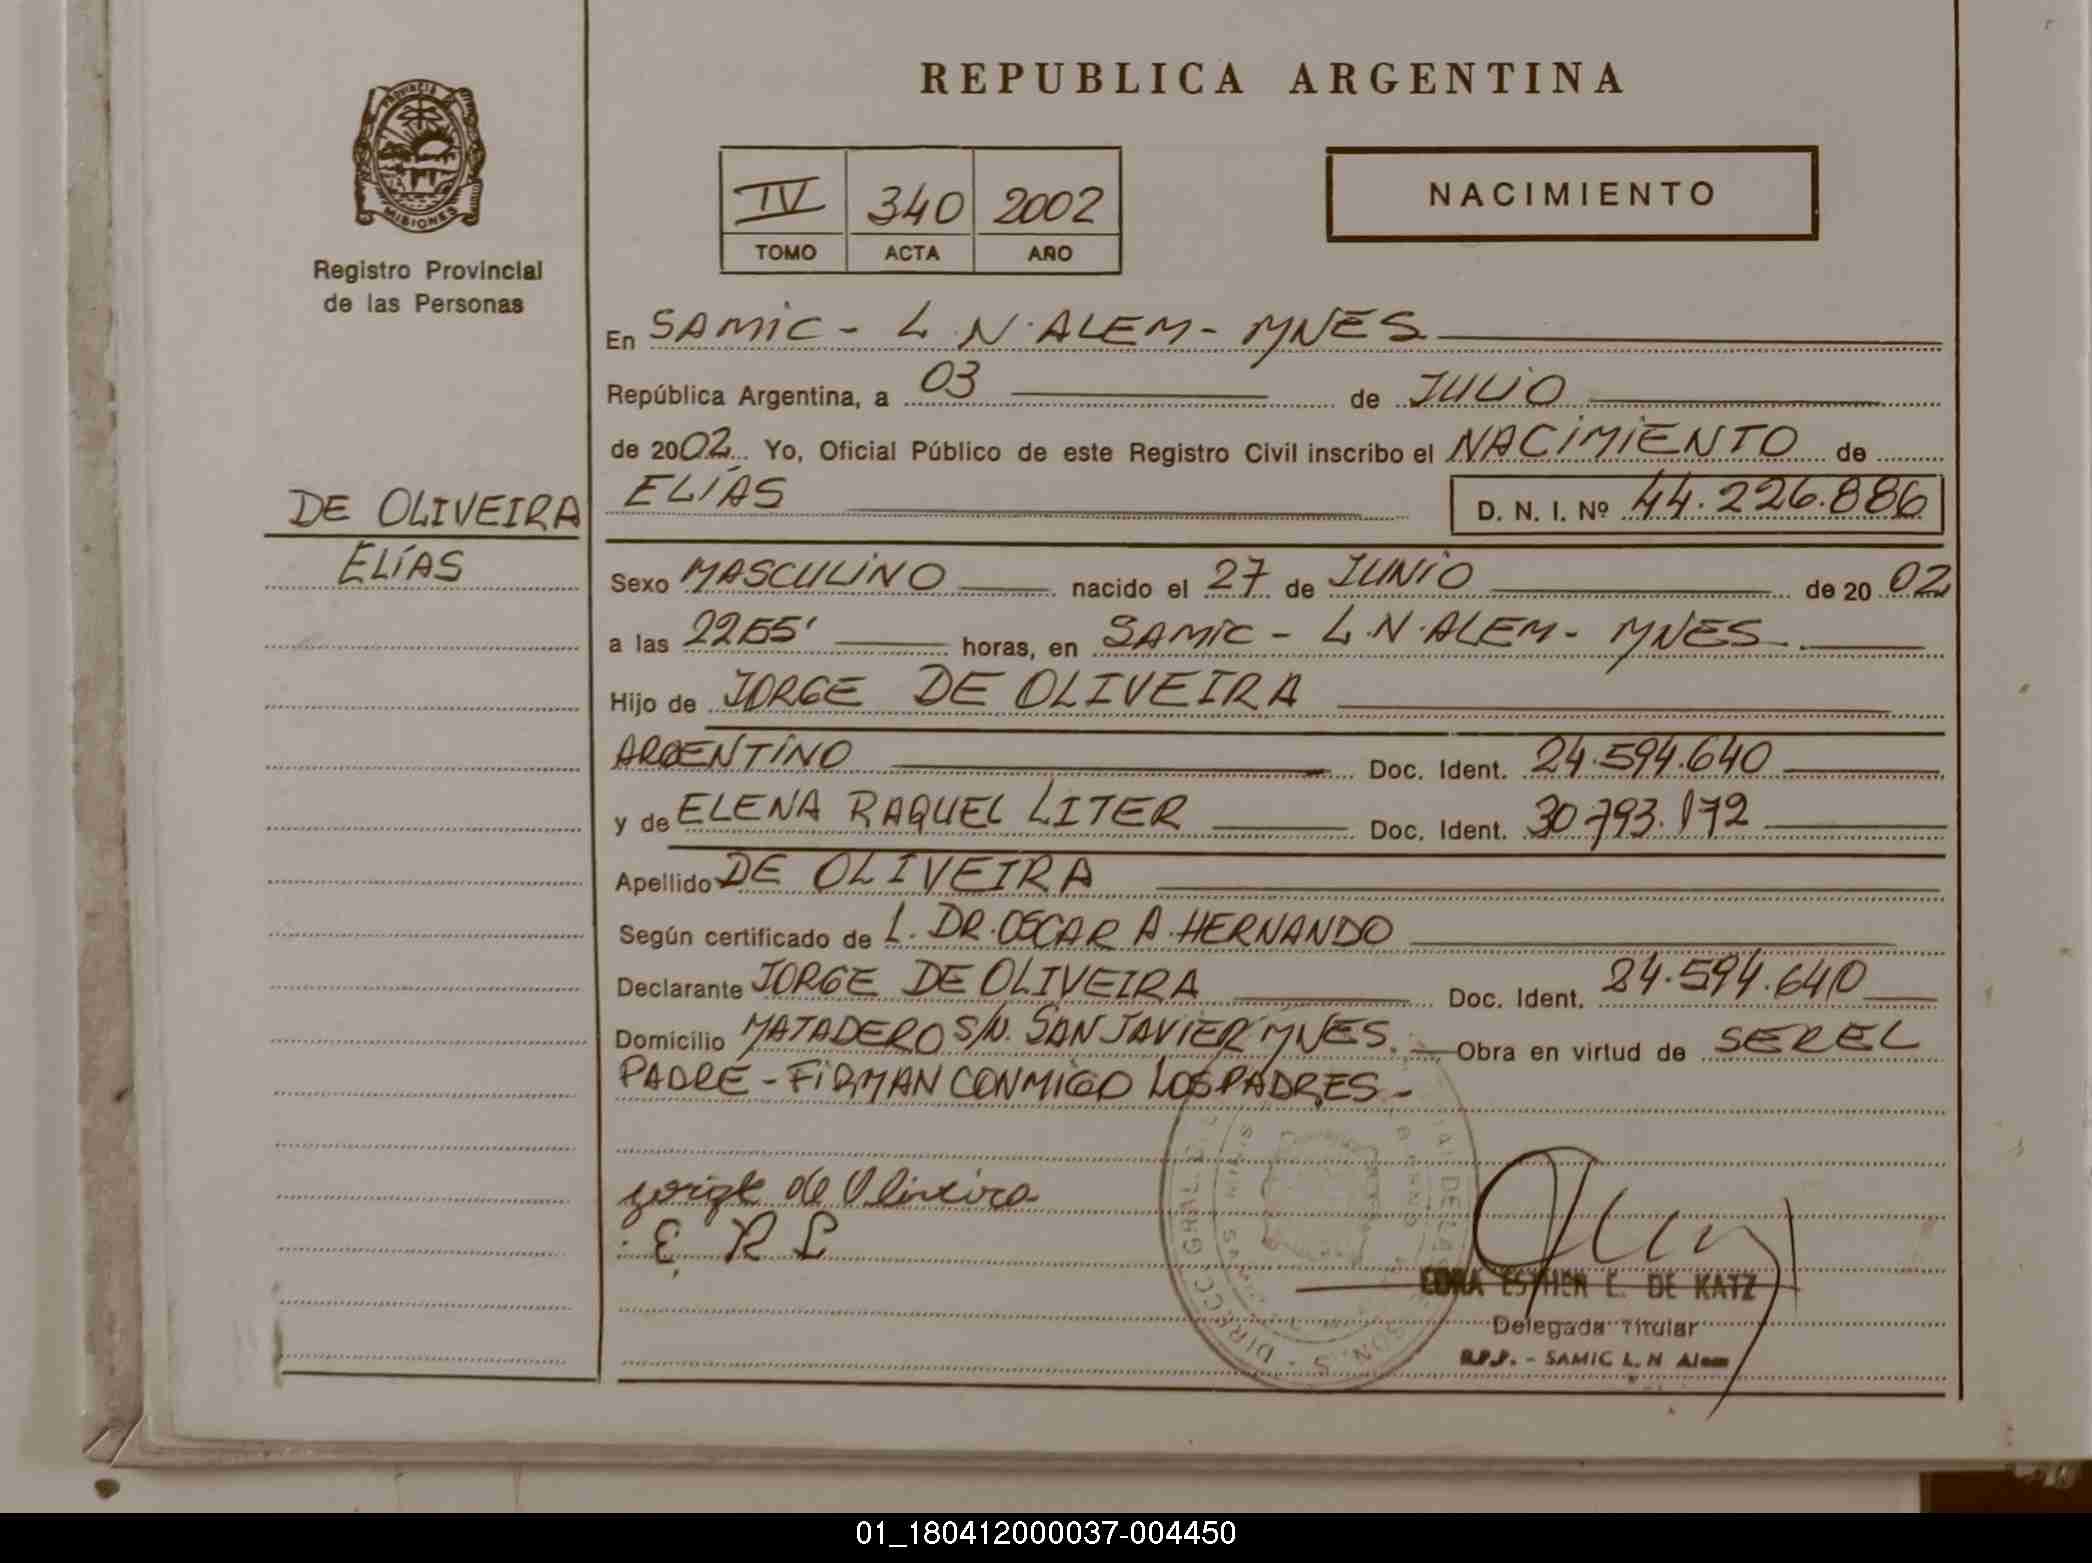 REPUBLICA ARGENTINA
PROVINCIA DE
MISIONES
Registro Provincial
de las Personas
IV 340 2002
TOMO ACTA AÑO
NACIMIENTO
En SAMIC - L.N. ALEM - MNES
República Argentina, a 03 de JULIO
de 2002 Yo, Oficial Público de este Registro Civil inscribo el NACIMIENTO de
ELÍAS D. N. I. Nº 44.226.886
DE OLIVEIRA
ELÍAS
Sexo MASCULINO nacido el 27 de JUNIO de 20 02
a las 2255' horas, en SAMIC - L.N. ALEM - MNES
Hijo de JORGE DE OLIVEIRA
ARGENTINO Doc. Ident. 24.594.640
y de ELENA RAQUEL LITER Doc. Ident. 30.793.172
Apellido DE OLIVEIRA
Según certificado de L. DR. OSCAR A. HERNANDO
Declarante JORGE DE OLIVEIRA Doc. Ident. 24.594.640
Domicilio MATADERO S/N. SAN JAVIER MNES. Obra en virtud de SEREL
PADRE - FIRMAN CONMIGO LOS PADRES -
jorige de Oliveira
E R L
ESTHER L. DE KATZ
Delegada Titular
R.P.P. - SAMIC L. N Alem
01_180412000037-004450